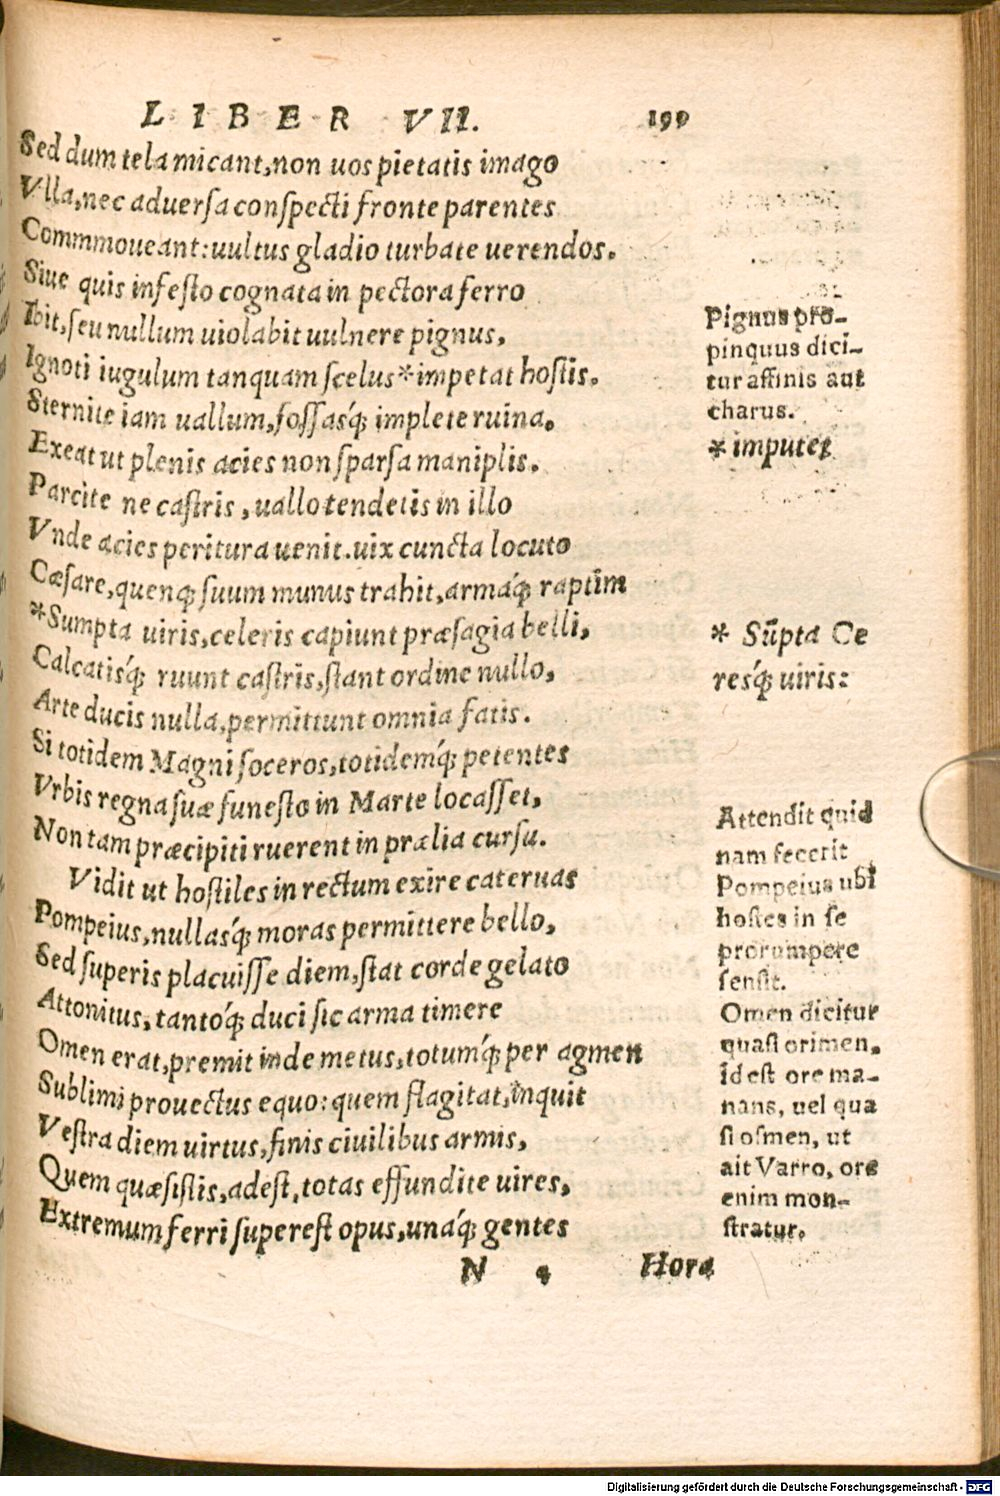 LIBER VII. 199
Sed dum tela micant, non uos pietatis imago
Vlla, nec aduersa conspecti fronte parentes
Commmoueant: uultus gladio turbate uerendos.
Siue quis infesto cognata in pectora ferro
Ibit, seu nullum uiolabit uulnere pignus,
Ignoti iugulum tanquam scelus*impetat hostis.
Sternite iam uallum, fossasq́; implete ruina.
Exeat ut plenis acies non sparsa maniplis.
Parcite ne castris, uallo tendetis in illo
Vnde acies peritura uenit. uix cuncta locuto
Cæsare, quenq; suum munus trahit, armaq́; raptim
*Sumpta uiris, celeris capiunt præsagia belli,
Calcatisq́; ruunt castris, stant ordine nullo,
Arte ducis nulla, permittunt omnia fatis.
Si totidem Magni soceros, totidemq́; petentes
Vrbis regna suæ funesto in Marte locasset,
Non tam præcipiti ruerent in prælia cursu.
Vidit ut hostiles in rectum exire cateruas
Pompeius, nullasq́; moras permittere bello,
Sed superis placuisse diem, stat corde gelato
Attonitus, tantoq́; duci sic arma timere
Omen erat, premit inde metus, totumq́; per agmen
Sublimi prouectus equo: quem flagitat, inquit
Vestra diem uirtus, finis ciuilibus armis,
Quem quæsistis, adest, totas effundite uires,
Extremum ferri superest opus, unaq́; gentes
N 4 Hora
Pignus pro-
pinquus dici-
tur affinis aut
charus.
* imputet
* Sũpta Ce
resq́; uiris:
Attendit quid
nam fecerit
Pompeius ubi
hostes in se
prorumpere
sensit.
Omen dicitur
quasi orimen,
id est ore ma-
nans, uel qua
si osmen, ut
ait Varro, ore
enim mon-
stratur.
Digitalisierung gefördert durch die Deutsche Forschungsgemeinschaft - DFG